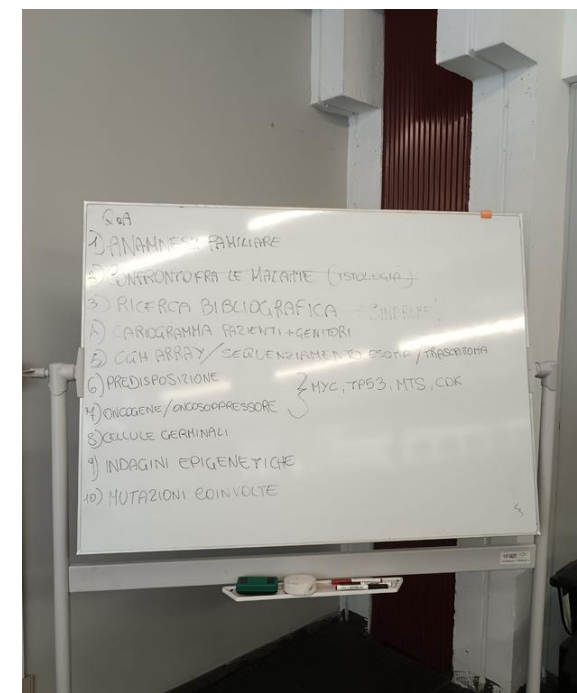 Q&A
1) ANAMNESI FAMILIARE
2) CONFRONTO FRA LE MALATTIE (ISTOLOGIA)
3) RICERCA BIBLIOGRAFICA "SINDROME"
4) CARIOGRAMMA PAZIENTI + GENITORI
5) CGH ARRAY / SEQUENZIAMENTO ESOMA / TRASCRITTOMA
6) PREDISPOSIZIONE
7) ONCOGENE / ONCOSOPPRESSORE } MYC, TP53, MTS, CDK
8) CELLULE GERMINALI
9) INDAGINI EPIGENETICHE
10) MUTAZIONI COINVOLTE